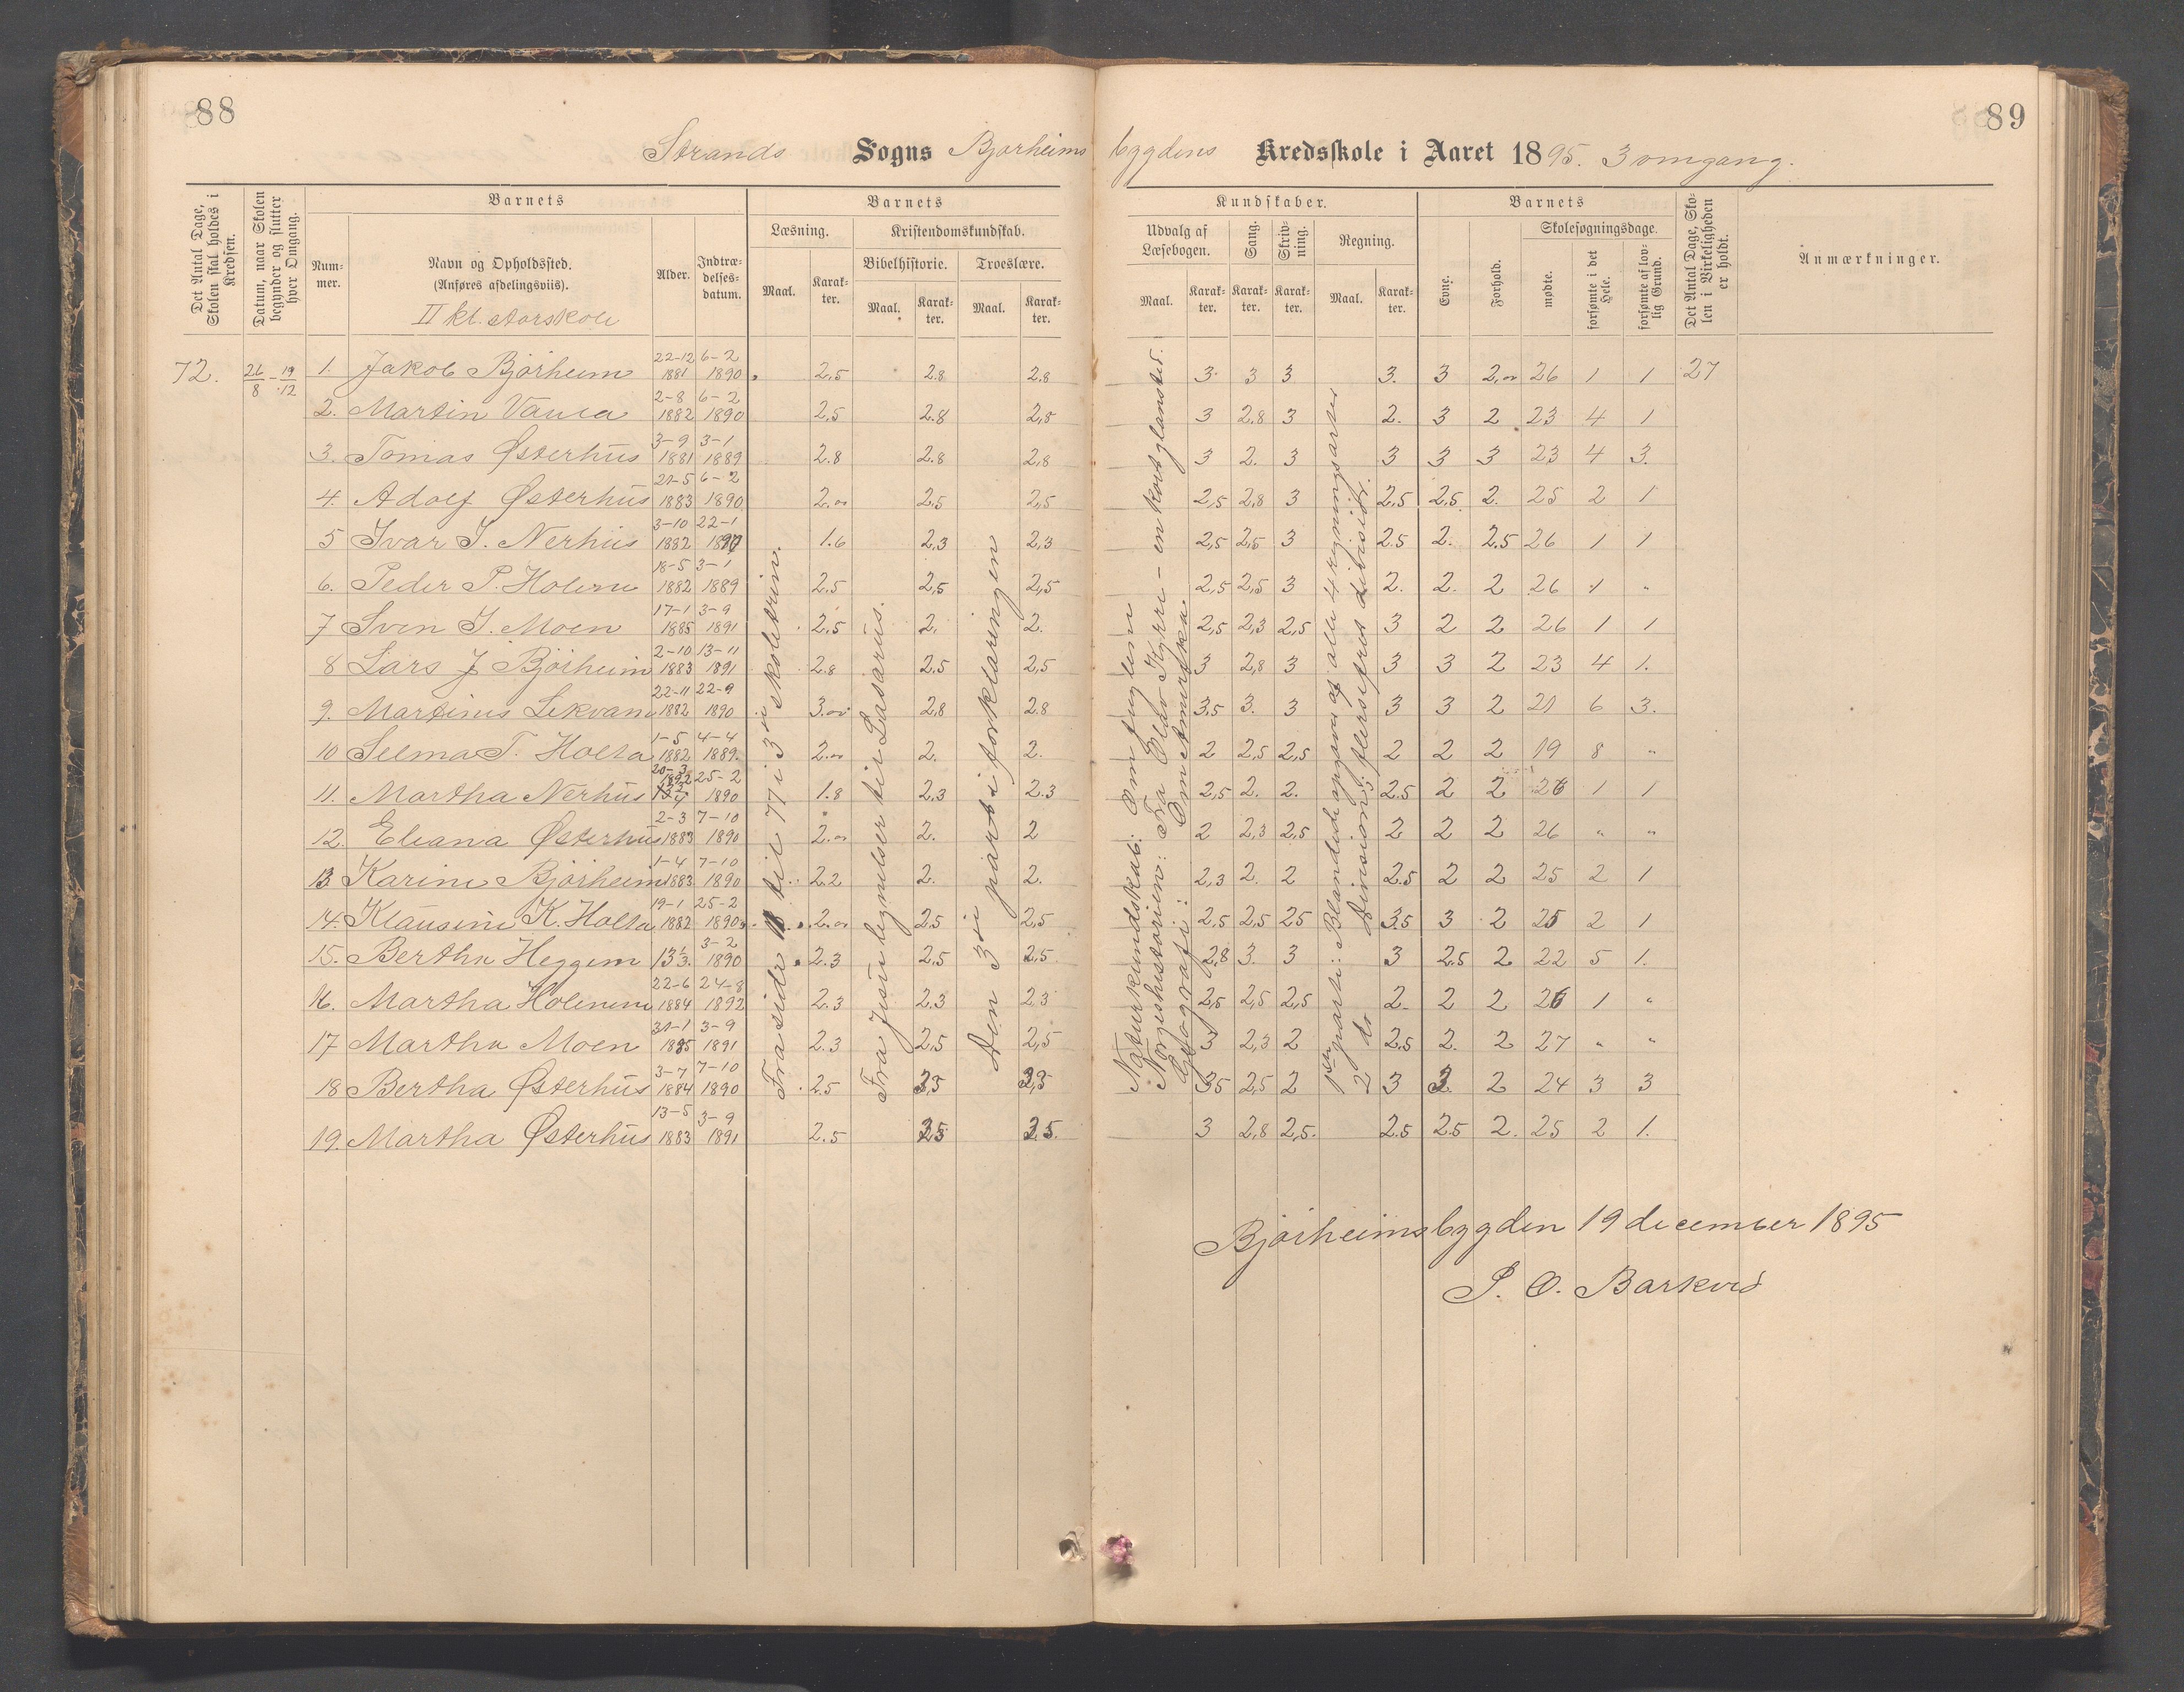 88
89
Strands Sogns Bjørheims bygdens Kredsskole i Aaret 1895. 3 omgang.
Det Antal Dage, Skolen skal holdes i Kredsen.
Datum, naar Skolen begynder og slutter hver Omgang.
Barnets
Nummer.
Navn og Opholdssted.
(Anføres afdelingsviis).
II kl. Aarskole
Alder.
Indtrædelsesdatum.
Barnets
Læsning.
Maal.
Karakter.
Kristendomskundskab.
Bibelhistorie.
Troeslære.
Maal.
Karakter.
Maal.
Karakter.
Kundskaber.
Udvalg af Læsebogen.
Maal.
Karakter.
Sang.
Karakter.
Skrivning.
Karakter.
Regning.
Maal.
Karakter.
Barnets
Evne.
Forhold.
Skolesøgningsdage.
mødte.
forsømte i det Hele.
forsømte af lovlig Grund.
Det Antal Dage, Skolen i Virkeligheden er holdt.
Anmærkninger.
72. 26/8 - 19/12
1. Jakob Bjørheim 22-12 1881 6-2 1890 2,5 2.8 2.8 3 3 3 3. 3 2,00 26 1 1 27
2. Martin Vaula 2-8 1882 6-2 1890 2,5 2.8 2,8 3 2,8 3 2. 3 2 23 4 1
3. Tomas Østerhus 3-9 1881 3-1 1889 2.8 2.8 2,8 3 2. 3 3 3 3 23 4 3.
4. Adolf Østerhus 21-5 1883 6-2 1890 2,00 2,5 2,5 2,5 2,8 3 2,5 2,5 2. 25 2 1
5 Ivar I. Nerhus 3-10 1882 22-1 1890 1.6 2,3 2,3 2,5 2,5 3 2.5 2. 2.5 26 1 1
6. Peder P. Holene 18-5 1882 3-1 1889 2.5 2,5 2,5 2,5 2,5 3 2. 2. 2 26 1 "
7 Sven I. Moen 17-1 1885 3-9 1891 2,5 2. 2. 2,5 2,3 2,5 3 2 2 26 1 1
8 Lars J Bjørheim 2-10 1883 13-11 1891 2.8 2.5 2,5 3 2,8 3 3 3 2 23 4 1.
9. Martinus Lekvam 22-11 1882 22-9 1890 3.00 2,8 2.8 3.5 3. 3 3 3 2 21 6 3.
10 Selma T. Holta 1-5 1882 4-4 1889. 2.00 2. 2. 2 2,5 2,5 2 2 2 19 8 "
11. Martha Nerhus 25-2 1890 1.8 2,3 2.3 2,5 2. 2. 2.5 2 2 26 1 1
12. Eleana Østerhus 2-3 1883 7-10 1890 2.00 2. 2 2 2,3 2,5 2 2 2 26 " "
13 Karine Bjørheim 1-4 1883 7-10 1890 2.2 2. 2. 2,3 2. 2 2.5 2 2 25 2 1
14. Klausine K. Holta 19-1 1882 25-2 1890 2.00 2,5 2,5 2,5 2,5 25 3.5 3 2 25 2 1
15. Bertha Heggem 13 1/3. 3-2 1890 2.3 2,5 2,5. 2,8 3. 3 3 2.5 2 22 5 1.
16. Martha Holenene 22-6 1884 24-8 1892 2.3 2.3 2,3 2,5 2,5 2,5 2. 2 2 26 1 "
17 Martha Moen 31-1 1885 3-9 1891 2.3 2,5 2,5 3 2,3 2 2.5 2. 2 27 " "
18 Bertha Østerhus 3-7 1884 7-10 1890 2.5 3,5 3,5 3,5 2,5 2 3 3. 2 24 3 3
19. Martha Østerhus 13-5 1883 3-9 1891 2.5 3.5 3.5. 3 2,8 2,5. 2.5 2.5 2. 25 2 1.
Fra side 11 til 77 i 3die skoletrin.
Fra Jesu lignelser til Lasarus.
Den 3die part i forklaringen
Naturkundskab: Om fuglene
Norgeshistorien: Fra Olav Kyrre - en kort glanstid.
Geografi: Om Amerika.
1ste parti: Blandede opgaver af alle 4 regningsarter
2 do Division; flersifret divisor.
Bjørheimsbygden 19 december 1895
P. O. Barkved